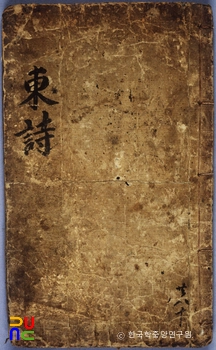 東詩
© 한국학중앙연구원